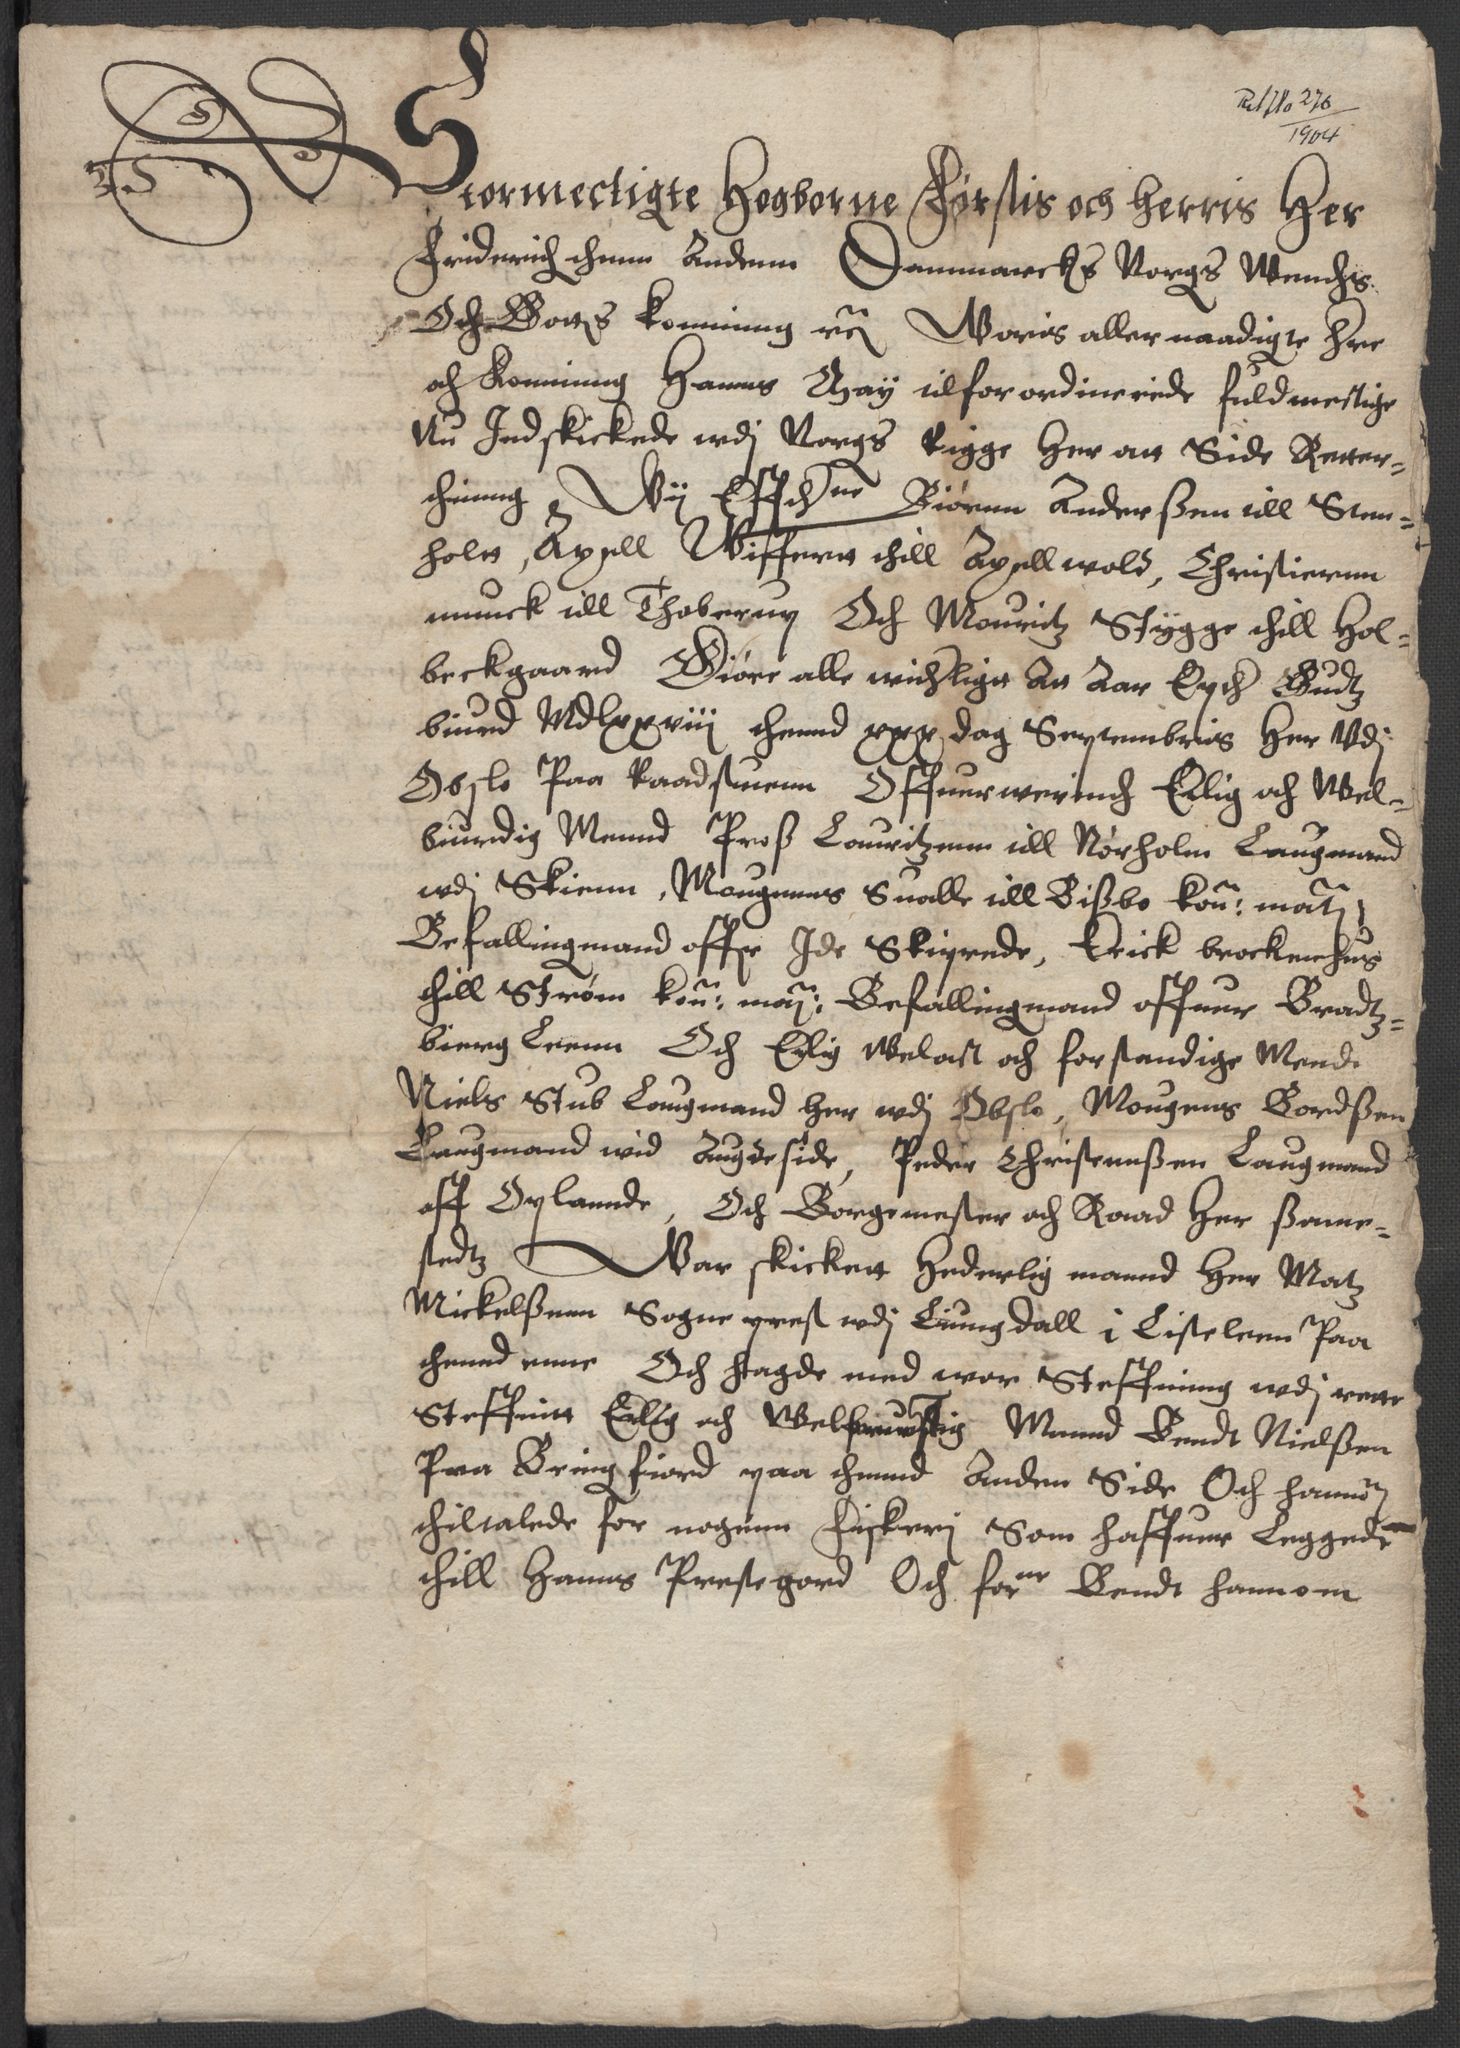 Ref No 276
1904
Stormectigte Hogborne Førstis och herris Her
Friderich thenn Andenn Danmarcks Norgs Wendis
Och Gottis konning etc Woris aller naadigte Hre
och Konning Hanns May tilforordinerede fuldmectige
Nu Indskickede wdj Norgs Rigge Her att Side Retter-
thinng, Wij Effthne Biørnn Anderßen till Sten-
holtt, Axell Wiffertt thill Axellwold, Christiernn
munck till Thoberup Och Mouritz Stygge thill Hol-
beckgaard Giøre alle witterligtt Att Aar Epther Gudtz
biurd Mdlxxviij thennd xxx dag Septembris Her Vdj
Obslo Paa Raadstuenn Offuerwerindh Erlig och Wel-
biurdig Mennd Proß Lauritzenn till Nørholm Laugmand
wdj Skienn, Mougenns Sualle till Bißbo kon: matz
Befallingmand offr Ide Skiprede, Erick brockenhus
thill Strøm kon: may: Befallingmand offuer Bradtz-
bierg Leenn Och Erlig Welact och forstandige Mend
Niels Stub Laugmand her wdj Obslo, Mougens Bordßen
Laugmand wid Augdeside, Peder Christennßen Laugmand
aff Oplannde, Och Borgemester och Raad Her sßame-
stedtz War skickett Hederlig mannd Her Matz
Mickelßenn Sogneprest wdj Liungdall i Listeleen Paa
thennd enne Och hagde med wor Steffning wdj rette
Steffnitt Erlig och Welfornustig Mannd Bendt Nielßen
Paa Bringfiord paa thennd Anden Side Och hannom
thiltalede for nogenn Fiskerj Som haffuer Leggedt
thill Hanns Prestegord Och forne Bendt hannom